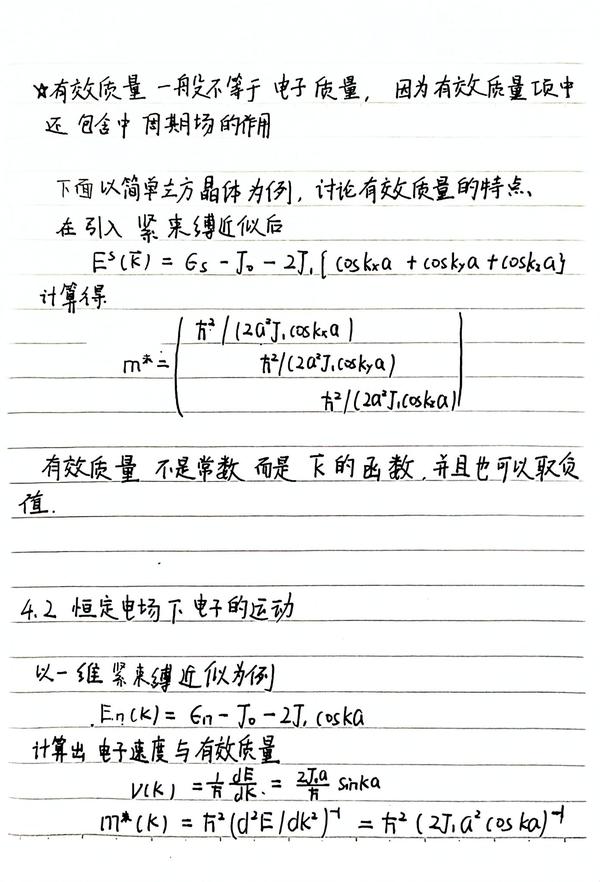 ☆有效质量 一般不等于 电子质量, 因为有效质量项中
还 包含中 周期场的作用
下面以简单立方晶体为例, 讨论有效质量的特点、
在引入 紧束缚近似后
E^s(k⃗) = ϵs - J₀ - 2J₁{ coskxa + coskya + coskza}
计算得
ħ²/(2a²J₁coskxa)
m* = ħ²/(2a²J₁coskya)
ħ²/(2a²J₁coskza)
有效质量 不是常数 而是 k⃗ 的函数, 并且也可以取负
值.
4.2 恒定电场下电子的运动
以一维 紧束缚近似为例
En(k) = ϵn - J₀ - 2J₁ coska
计算出 电子速度与有效质量
V(k) = 1/ħ dE/dk = 2J₁a/ħ sinka
m*(k) = ħ²(d²E/dk²)⁻¹ = ħ²(2J₁a²coska)⁻¹